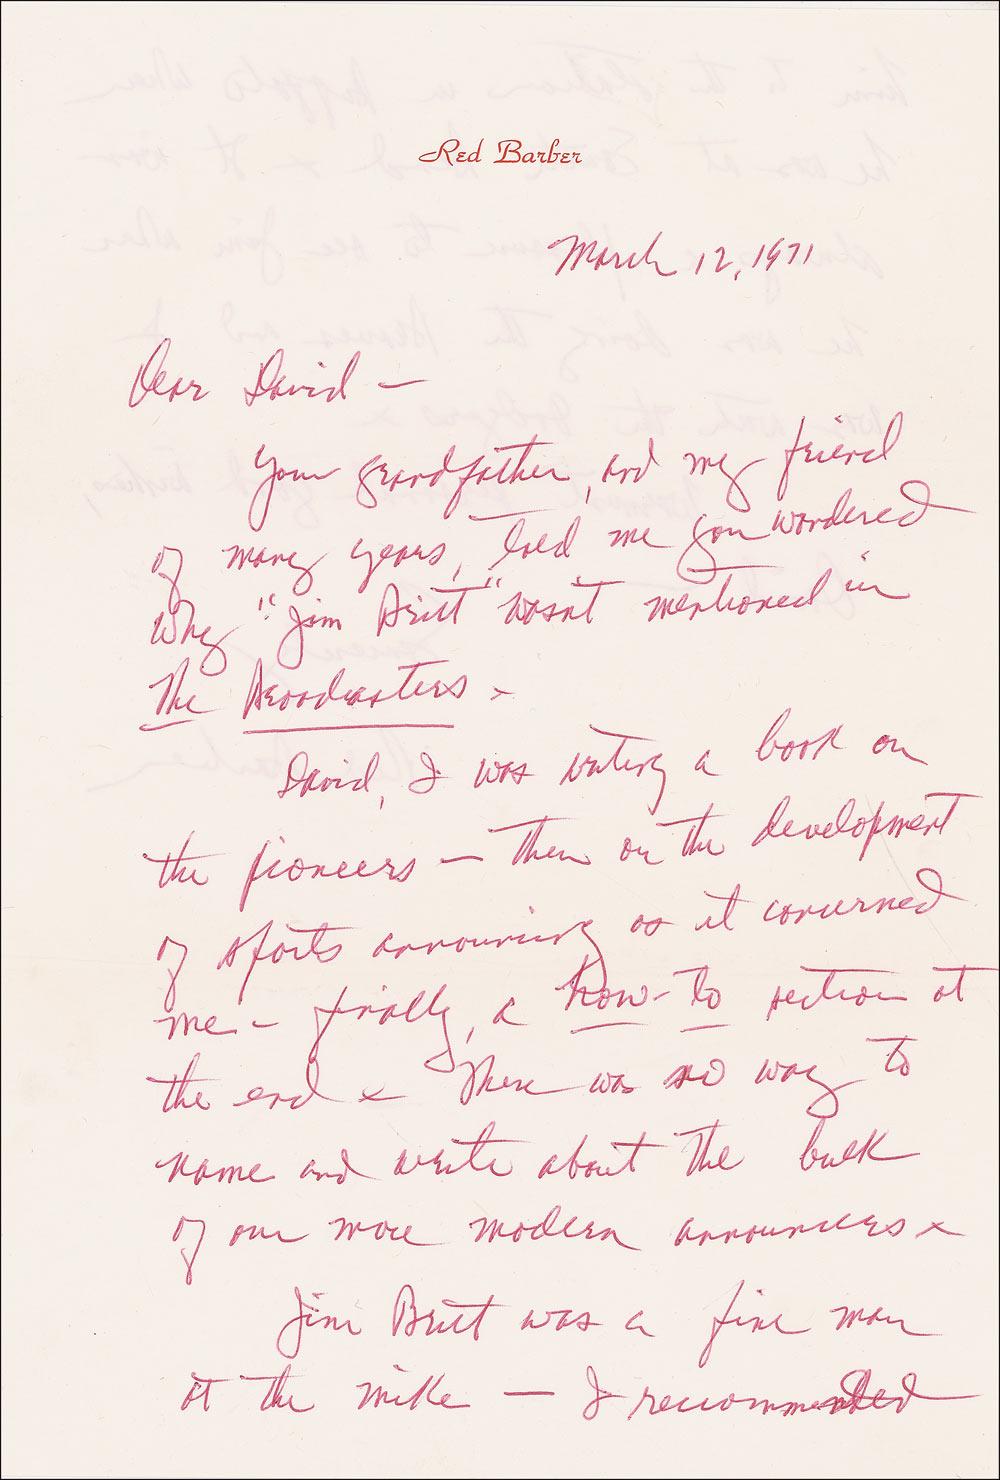 Red Barber
March 12, 1971
Dear David —
Your grandfather, and my friend
of many years, told me you wondered
why "Jim Britt" wasn't mentioned in
The Broadcasters.
David, I was writing a book on
the pioneers — then on the development
of sports announcing as it concerned
me — finally, a how-to section at
the end. There was no way to
name and write about the bulk
of our more modern announcers.
Jim Britt was a fine man
at the mike — I recommended